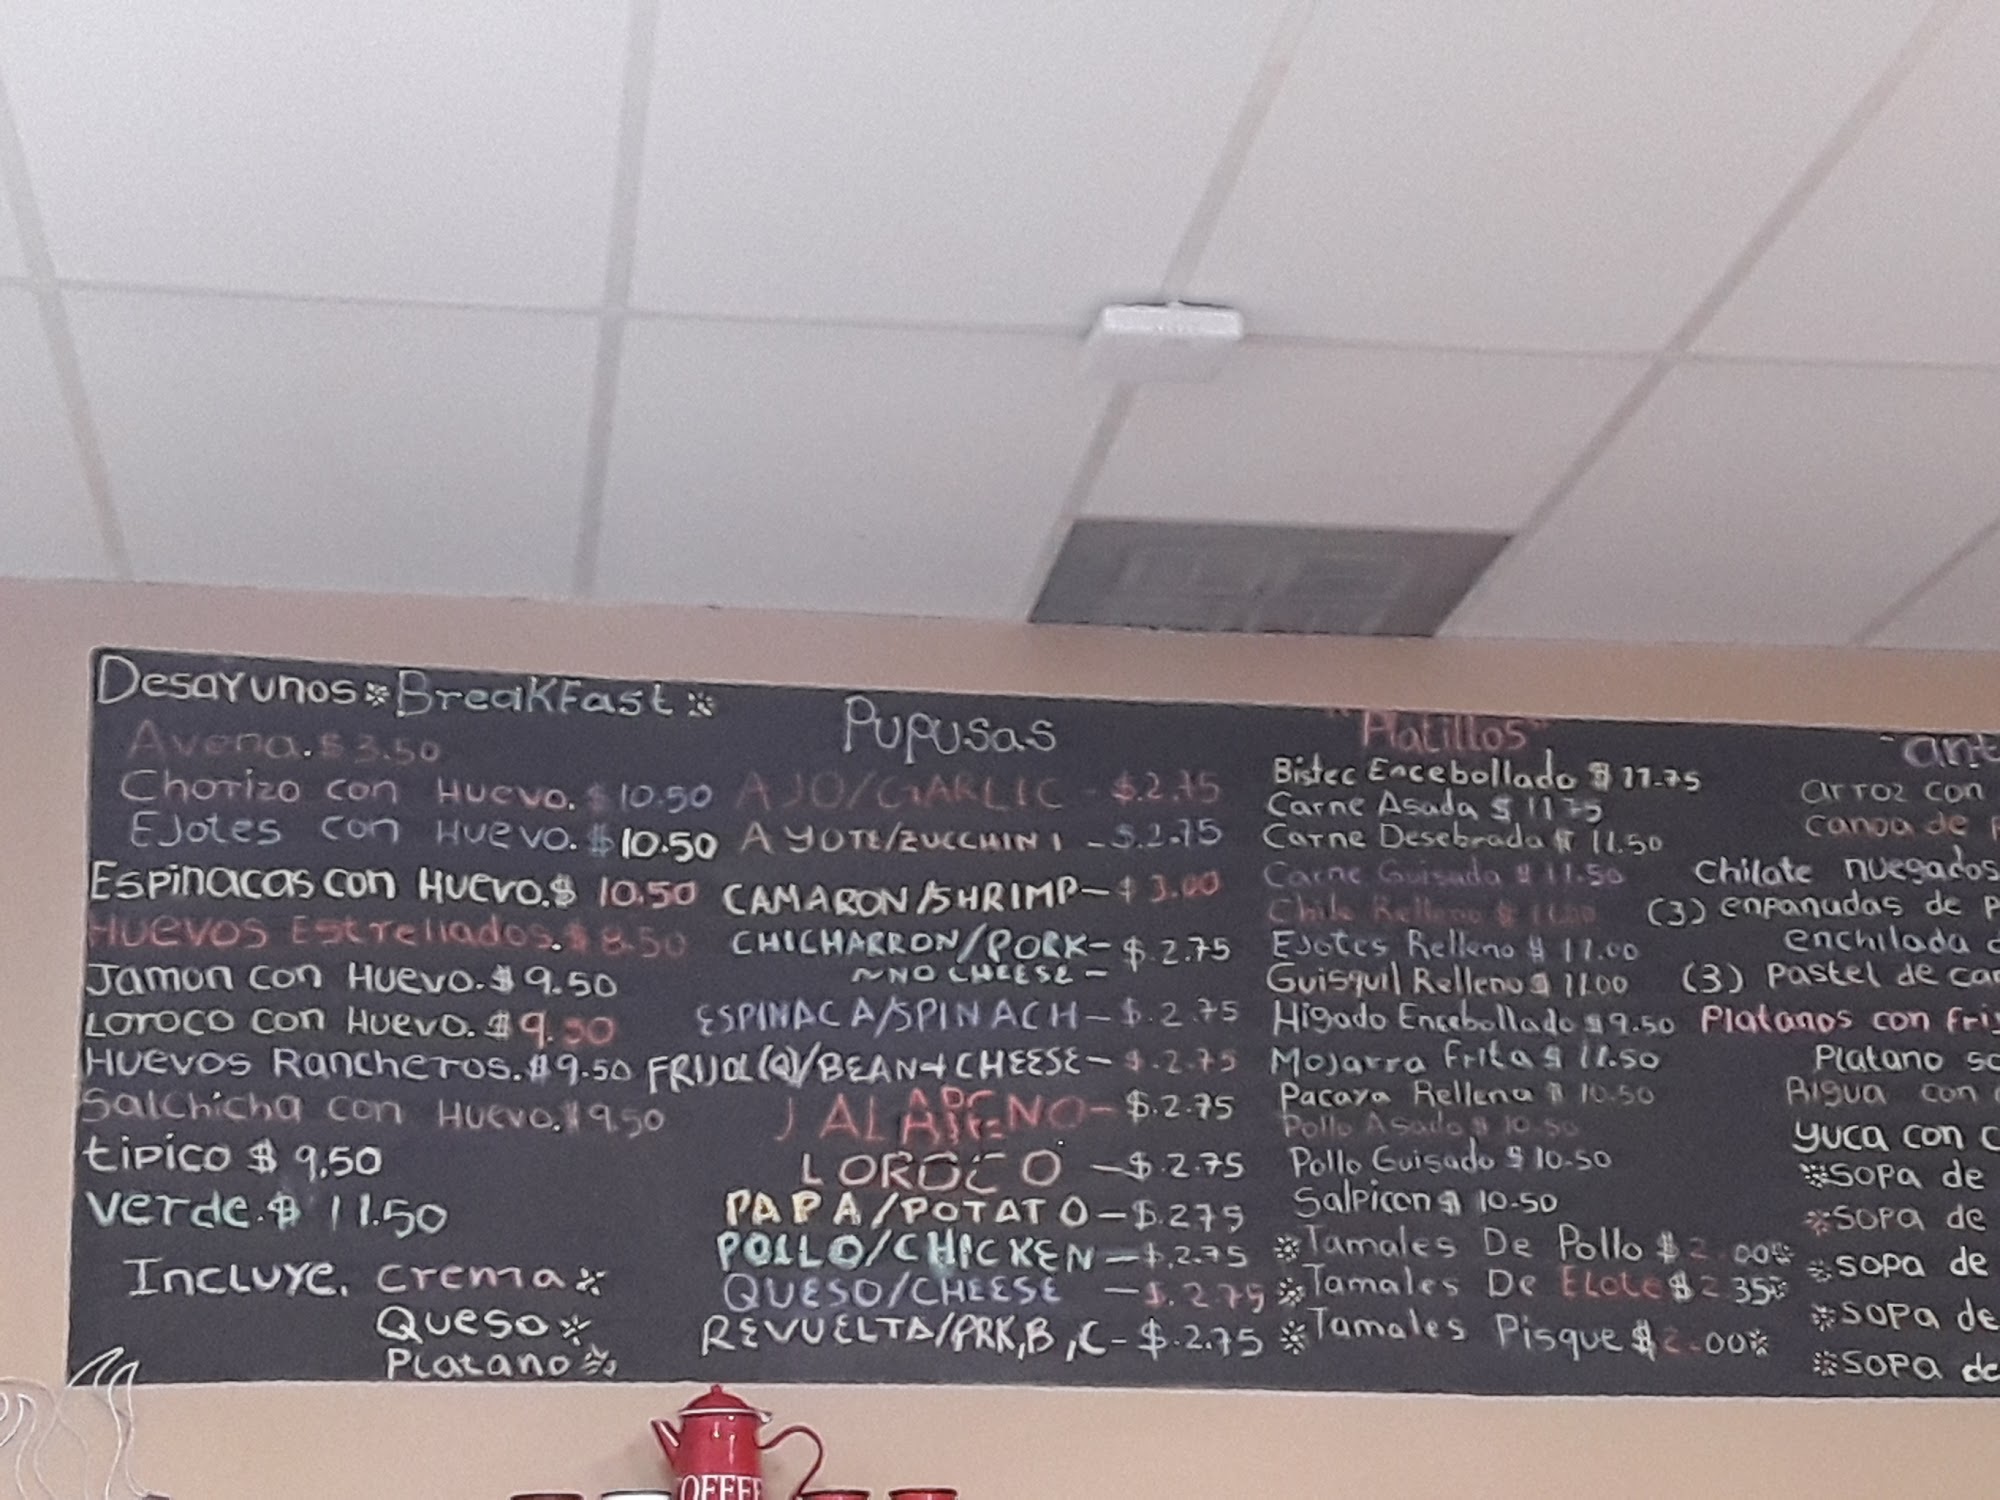 Desayunos BreakFast
Avena. $ 3.50
Chorizo con Huevo. $ 10.50
EJotes con Huevo. $ 10.50
Espinacas con Huevo. $ 10.50
Huevos Estrellados. $ 8.50
Jamon con Huevo. $ 9.50
Loroco con Huevo. $ 9.50
Huevos Rancheros. $ 9.50
Salchicha con Huevo. $ 9.50
tipico $ 9.50
Verde. $ 11.50
Incluye. Crema
Queso
Platano
Pupusas
AJO/GARLIC - $.2.75
AYOTE/ZUCCHINI - $.2.75
CAMARON/SHRIMP - $ 3.00
CHICHARRON/PORK - $.2.75
~NO CHEESE -
ESPINACA/SPINACH - $.2.75
FRIJOL(Q)/BEAN+CHEESE - $.2.75
JALAPENO - $.2.75
LOROCO - $.2.75
PAPA/POTATO - $.275
POLLO/CHICKEN - $.2.75
QUESO/CHEESE - $.2.75
REVUELTA/PRK,B,C - $.2.75
"Platillos"
Bistec Encebollado $ 11.75
Carne Asada $ 11.75
Carne Desebrada $ 11.50
Carne Guisada $ 11.50
Chile Relleno $
EJotes Relleno $ 11.00
Guisquil Relleno $ 11.00
Higado Encebollado $ 9.50
MoJarra Frita $ 11.50
Pacaya Rellena $ 10.50
Pollo Asado $ 10.50
Pollo Guisado $ 10.50
Salpicon $ 10.50
Tamales De Pollo $ 2.00
Tamales De Elote $ 2.35
Tamales Pisque $ 2.00
arroz con
canoa de
Chilate nuegados
(3) enpanadas de
enchilada
(3) Pastel de
Platanos con
Platano
con
yuca con
sopa de
sopa de
sopa de
sopa de
sopa de